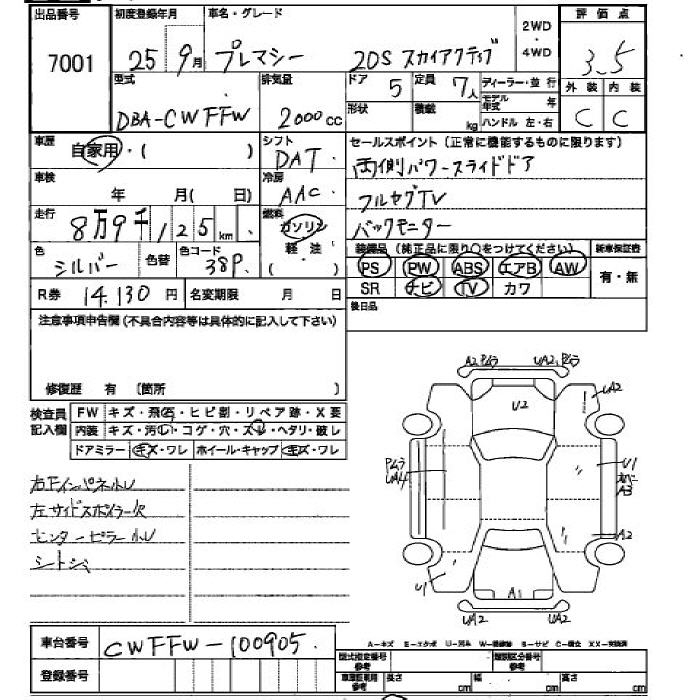 出品番号 初度登録年月 車名・グレード 2WD・4WD 評価点
7001 25 9月 プレマシー 20S スカイアクティブ 3.5
型式 排気量 ドア 5 定員 7人 ディーラー・並行 外装 内装
DBA-CWFFW 2000cc 形状 積載 kg モデル年式 年 ハンドル 左・右 C C
車歴 自家用・( ) シフト DAT セールスポイント(正常に機能するものに限ります)
車検 年 月( 日) 冷房 AAC 両側パワースライドドア
走行 8万9千125km 燃料 ガソリン 軽・油 ( ) フルセグTV
バックモニター
色 シルバー 色替 色コード 38P 装備品(純正品に限り○をつけてください) 新車保証書
PS PW ABS エアB AW 有・無
R券 14,130円 名変期限 月 日 SR ナビ TV カワ
注意事項申告欄(不具合内容等は具体的に記入して下さい) 後日品
修復歴 有 (箇所 )
検査員記入欄 FW キズ・飛石・ヒビ割・リペア跡・X要
内装 キズ・汚れ・コゲ・穴・スレ・ヘタリ・破レ
ドアミラー キズ・ワレ ホイール・キャップ キズ・ワレ
右下インパネ小U
左サイドスポイラー欠
センターピラー小U
シートシミ
A2 Pムラ UA2,Pムラ
UA2
U2
Pムラ
UA4
U1
A3
A2
U1
A1
UA2 UA2
車台番号 CWFFW-100905
登録番号
A-キズ E-エクボ U-凹み W-補修跡 S-サビ C-腐食 XX-交換済
型式指定番号 参考 類別区分番号 参考
車庫証明用 参考 長さ cm 幅 cm 高さ cm